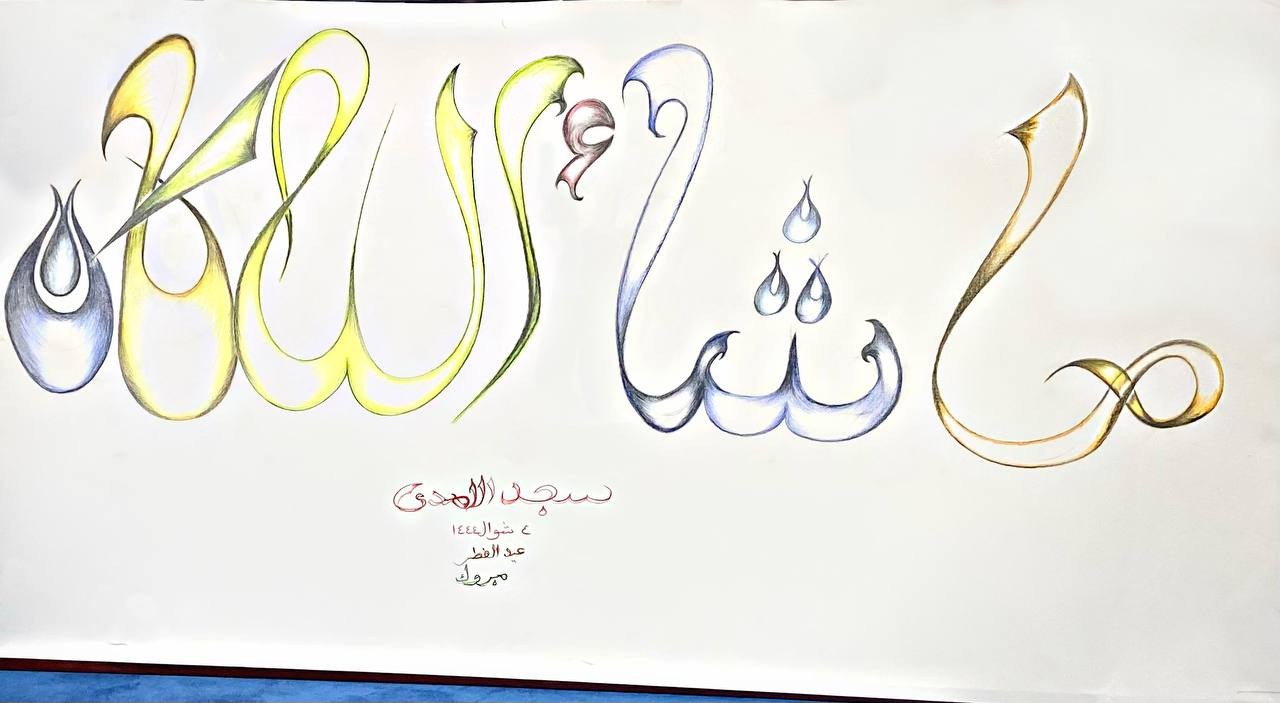 ما شاء الله كان
سجد الاهدى
٤ شوال ١٤٤٤
عيد الفطر
مبروك